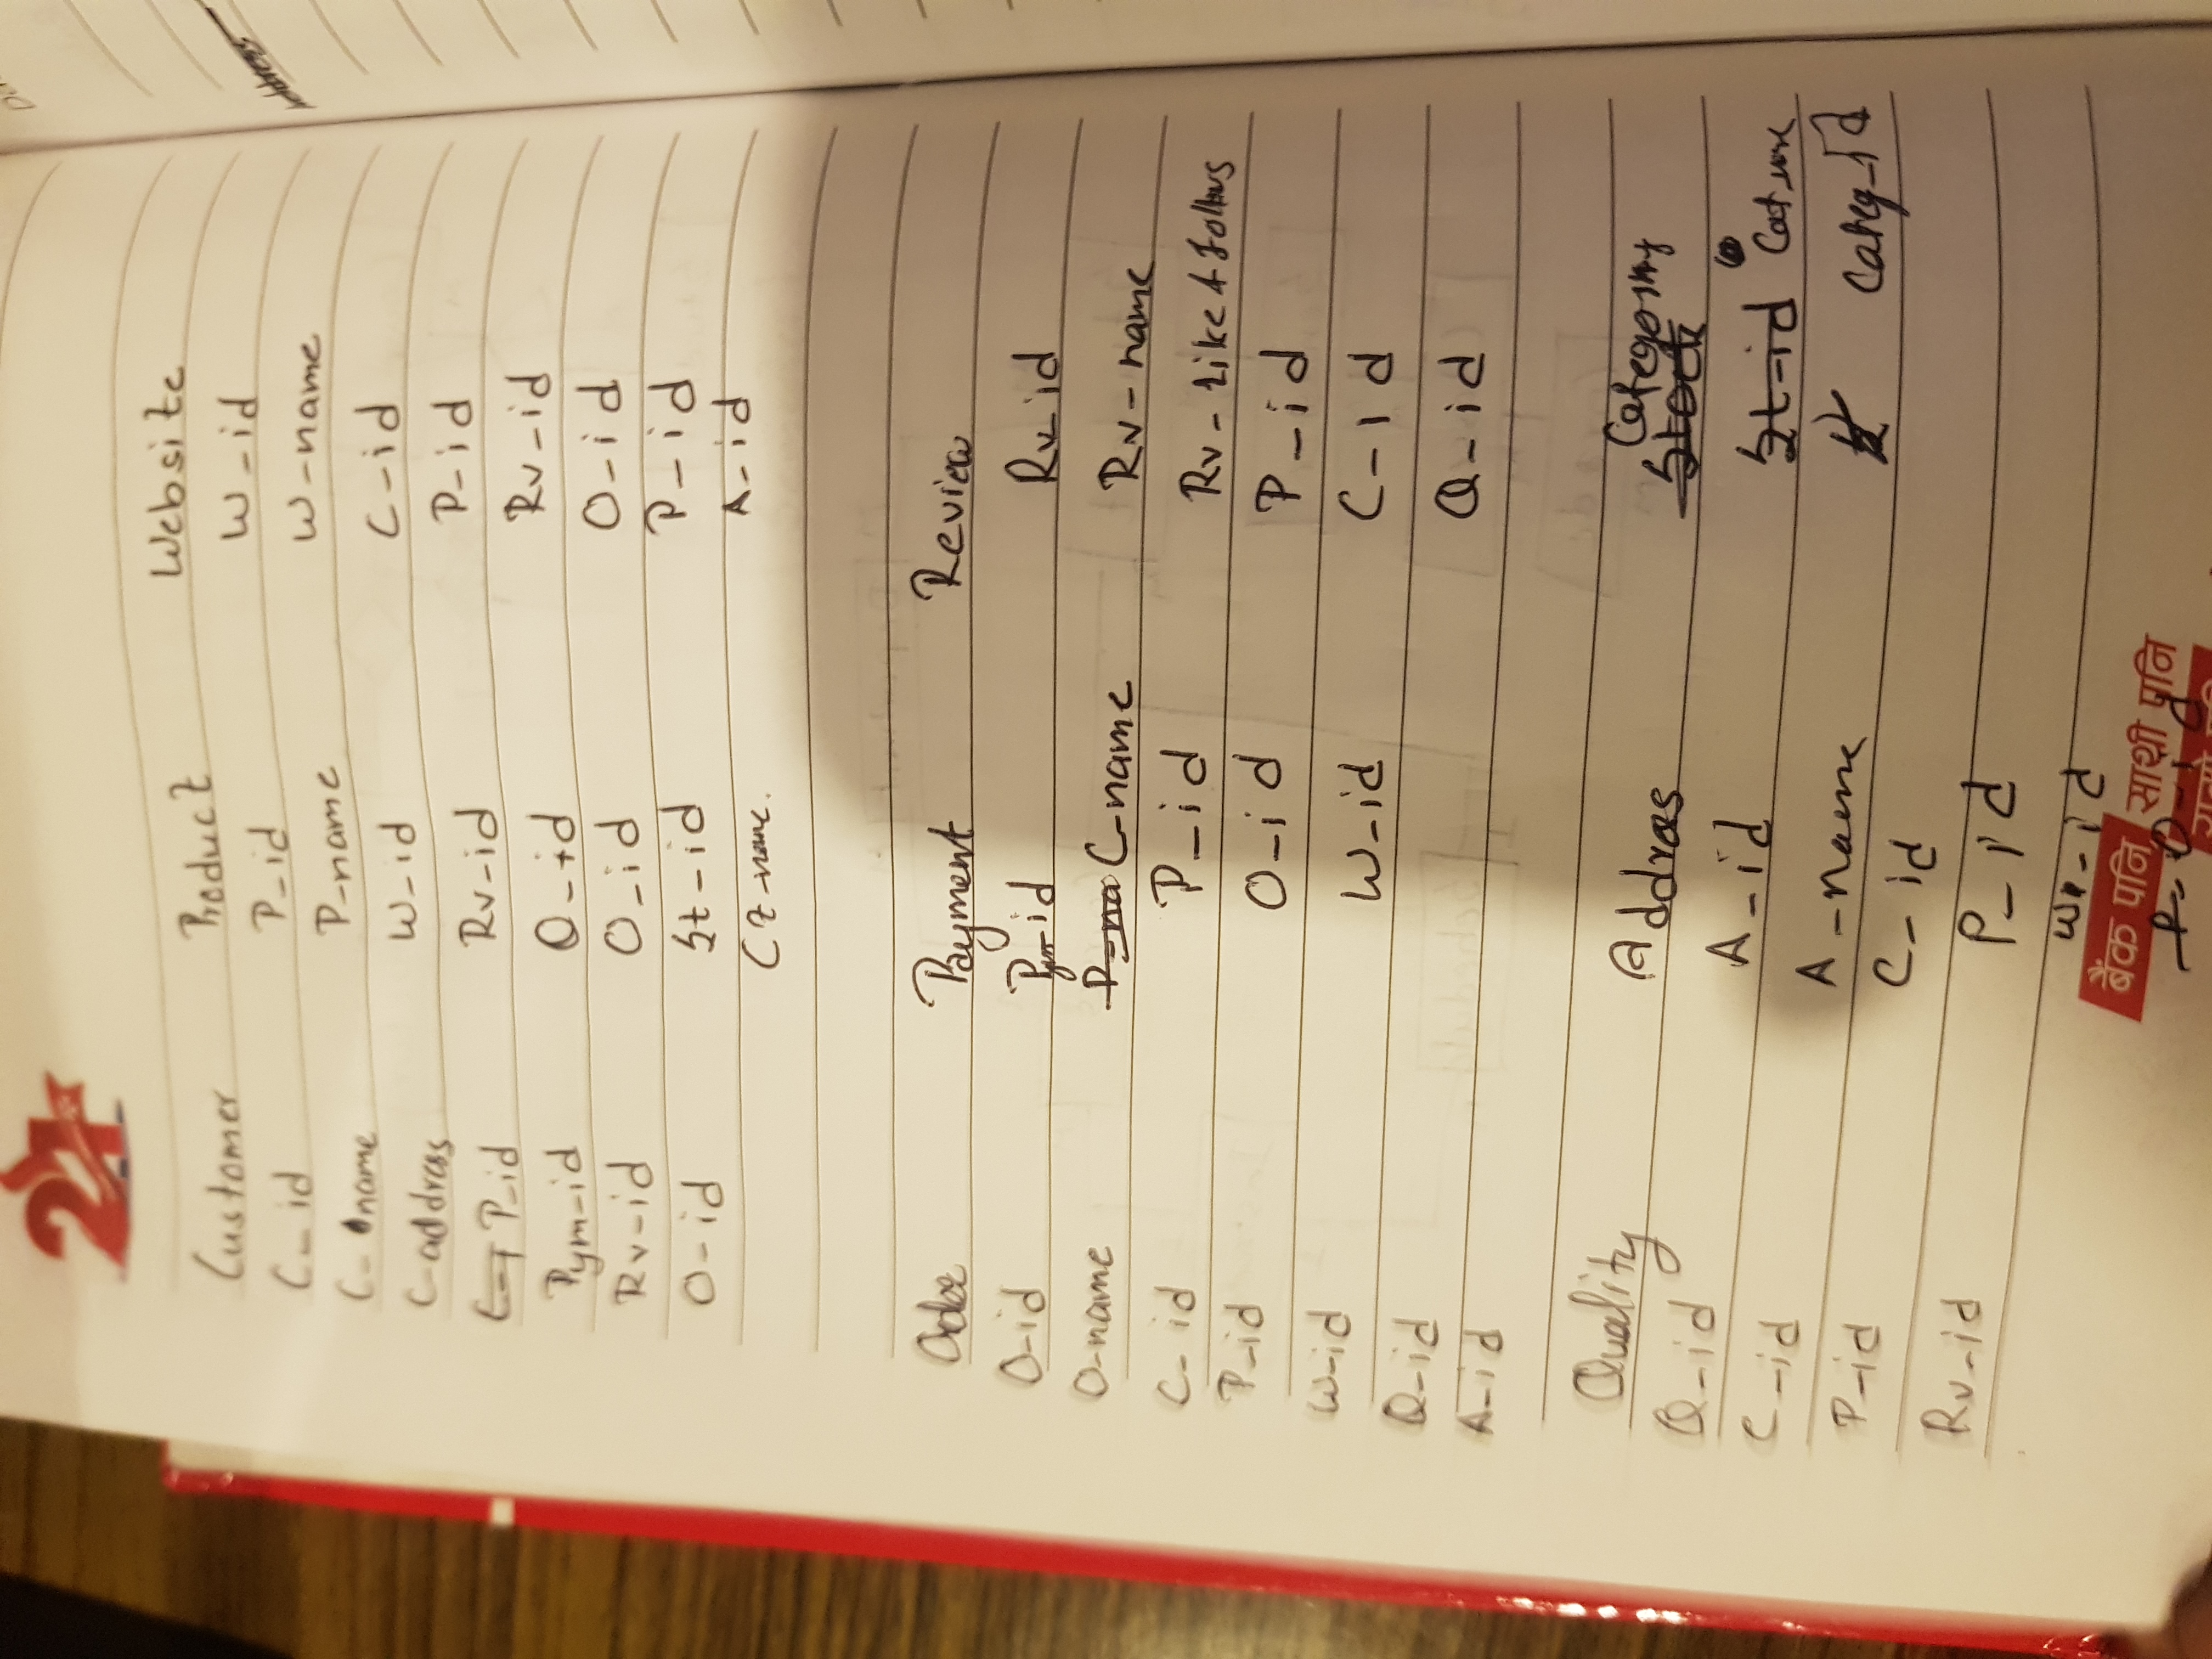 21
Customer
C_id
C-name
C-address
P_id
Pym-id
Rv-id
O-id
Product
P_id
P-name
W-id
Rv-id
Q-id
O_id
St-id
Website
W-id
W-name
C-id
P-id
Rv-id
O-id
P-id
A-id
O-id
O-name
C-id
P-id
W-id
Q-id
A-id
Payment
Pym-id
C-name
P_id
O-id
W-id
Review
Rv-id
Rv-name
Rv-Like & follows
P-id
C-id
Q-id
Quality
Q-id
C-id
P-id
Rv-id
Address
A-id
A-name
C-id
P-id
W-id
O-id
Category
Stock
St-id
Categ-id
बैंक पनि, साथी पनि
address